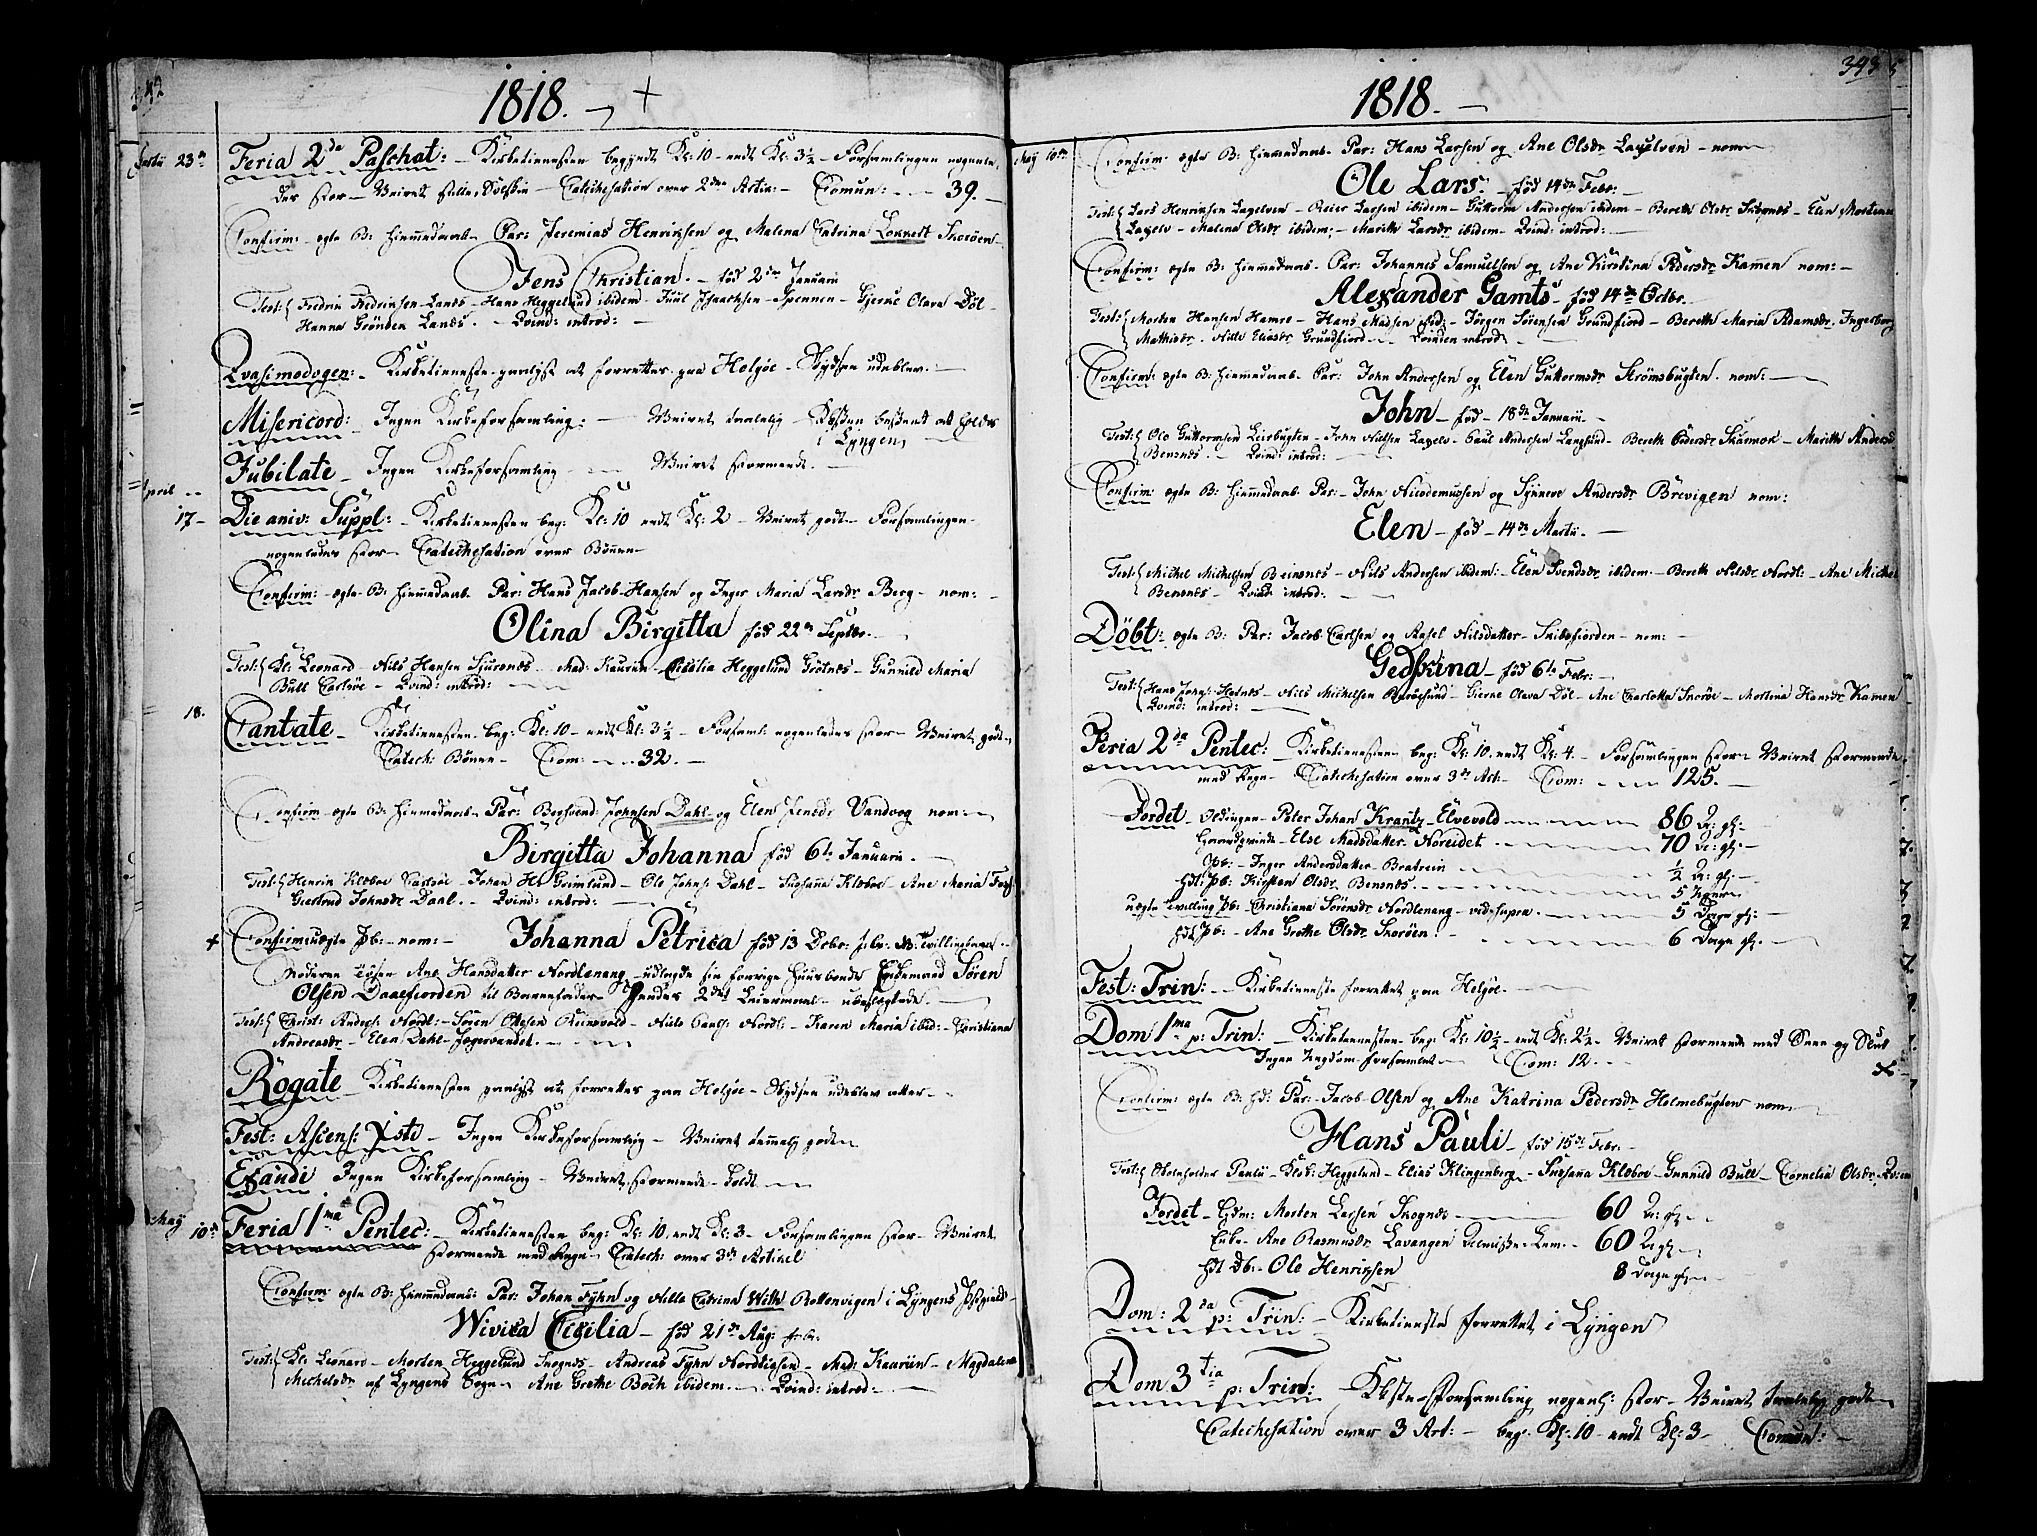 342
1818.
Martii 23de Feria 2da Paschat: Kirketienesten begyndt Kl: 10 endt Kl: 3½ Forsamlingen nogenle-
des stor Veiret stille, Solskin Catechesation over 2den Artic: Comun: 39.
Confirm: ægte B: hiemmedaab Par: Jeremias Henrichsen og Malena Catrina Lonnelt Skorøen
Jens Christian. fød 2den Januarii
Test: Fredric Fredricsen Lands Hans Heggelund ibidem Juul Isaachsen Spennen Gjerne Olava Døl
Hanna Grønden Lands. Qvind: introd:
Qvasimodogen: Kirketienesten paalyst at forrettes paa Helgøe Skydsen udeblev.
Misericord: Ingen Kirkeforsamling: Veiret taalelig bestemt at holdes
i Lyngen
Jubilate Ingen Kirkeforsamling Veiret stormende.
April
17 Die aniv: Suppl: Kirketienesten beg: Kl: 10 endt Kl: 2 Veiret godt Forsamlingen
nogenledes stor Catechesation over Bønnen
Confirm: ægte B: hiemmedaab Par: Hans Jacob Hansen og Inger Maria Larsdr Berg nom:
Olina Birgitta fød 22de Septbr.
Test: Kl: Leonard Nils Hansen Sjursnes Mad: Kaurin Cicilia Heggelund Grøtnes Gunnild Maria
Bull Carlsøe Qvind: introd:
18. Cantate Kirketienesten beg: Kl: 10 endt Kl: 3½ Forsaml: nogenledes stor Veiret godt
Catech: Bønnen Com: 32.
Confirm ægte B: hiemmedaab Par: Bersvend Johnsen Dahl og Elen Jensdr Vandvog nom:
Birgitta Johanna fød 6te Januarii.
Test: Henric Klæboe Carlsøe Johan Hr Grimlund Ole Johns: Dahl Susanna Klæboe Ane Maria
Giertrud Johnsdr Daal. Qvind: introd:
+ Confirm: uægte Pb: nom: Johanna Petrica fød 13 Decbr: Tvillingbarn
Moderen Tøsen Ane Hansdatter Nordlenang udlagde sin forrige Huusbonde Enkemand Søren
Olsen Daaefiorden til Barnefader Hendes 2det Leiermaal ubeslægtede.
Test: Christ: Anders: Nordl: Søren Olsen Reinsvold Nils Paals: Nordl: Karen Maria ibid: Christiana
Andreasdr Elen Dahl Jægervandet.
Rogate Kirketienesten paalyst at forrettes paa Helgøe Skydsen udeblev atter
Fest: Ascens: Xsti Ingen Kirkeforsamling Veiret temmelig godt
Exaudi Ingen Kirkeforsamling Veiret stormende Koldt
May
10de Feria 1ma Pentec: Kirketienesten beg: Kl: 10. endt Kl: 3 Forsamlingen stor Veiret
stormende med Regn Catech: over 3de Artikel
Confirm ægte B: hiemmedaab: Par: Johan Fyhn og Nille Catrina With Rottenvigen i Lyngens Præstegield
Wivica Cicilia fød 21de Aug:
Test: Kl: Leonard Morten Heggelund Snognes Andreas Fyhn Nordtiosen Mad: Kaurin Magdalena
Michelsdr af Lyngens Sogn Ane Grethe Boch ibidem. Qvind: introd:
343
1818.
May 10de Confirm: ægte B: hiemmedaab Par: Hans Larsen og Ane Olsdr Laxelven nom
Ole Lars: fød 14de Febr:
Test: Lars Henrichsen Laxelven Peier Larsen ibidem Guttorm Andersen ibidem Bereth Olsdr Snibsnes Elen Mortens
Laxelv Malena Olsdr ibidem; Marith Larsdr ibidem Qvind: introd:
Confirm: ægte B: hiemmedaab Par: Johannes Samuelsen og Ane Kirstina Pedersdr Kammen nom:
Alexander Gamts fød 14de Octbr.
Test: Morten Hansen Hamre Hans Madsen ibid: Jørgen Sørensen Grundfiord Bereth Maria Adamsdr. Ingeborg
Mathisdr. Nille Eliasdr Grundfiord Qvinden introd:
Confirm: ægte B: hiemmedaab Par: John Andersen og Elen Guttormsdr Strømsbugten. nom:
John fød 18de Januarii.
Test: Ole Guttormsen Leirbugten John Nielsen Laxelv Paul Andersen Langsund Bereth Pedersdr Skamok Marith Anders
Bensnes. Qvind: introd:
Confirm: ægte B: hiemmedaab Par: John Nicodemussen og Synneve Andersdr Brevigen nom:
Elen fød 14de Martii.
Test: Michel Michelsen Beinsnes Nils Andersen ibidem: Elen Svendsdr ibidem. Bereth Nilsdr Nordl: Ane Michels
Bensnes Qvind: introd:
Døbt: ægte B: Par: Jacob Carlsen og Axsel Nilsdatter Snibsfiorden nom:
Gedskina fød 6te Febr:
Test: Hans Johns: Hotnes Nils Michelsen Gierne Olava Døl Ane Charlotta Skorøe Mortina Hansdr Kamen
Qvind: introd:
Feria 2da Pentec: Kirketienesten beg: Kl: 10. endt Kl: 4. Forsamlingen stor Veiret stormende
med Regn Catechesation over 3de Art: Com: 125.
Jordet Oldingen Peter Johan Krantz Elvevold 86 Ar: gl:
Huusqvinde Else Madsdatter Noreidet 70 Ar: gl:
Pb: Inger Andersdatter Bratrein ½ Ar: gl:
hdt: Pb: Kirsten Olsdr Bensnes 5
uægte Tvilling Pb: Christiana Sørensdr Nordlenang vide supra 5 Dage gl:
hdt Pb: Ane Grethe Olsdr Skorøen 6 Dage gl.
Fest: Trin: Kirketieneste forrettet paa Helgøe.
Dom 1ma p: Trin: Kirketienesten beg: Kl: 10½ endt Kl: 2½ Veiret stormende med Snee og Slud
Ingen Ungdom forsamlet Com: 12.
Confirm: ægte B: hd: Par: Jacob Olsen og Ane Katrina Pedersdr Holmebugten nom
Hans Pauli fød 15de Febr.
Test: Paulii Klok: Heggelund Elias Klingenberg Susana Klæboe Gunnild Bull Cornelia Olsdr. Qv: in
Jordet Gdm: Morten Larsen Skognes 60 Ar: gl
Enke Ane Rasmusdr Lavangen Almisse Lem 60 Ar gl
hdt Db: Ole Henrichsen 8 Dage gl:
Dom: 2da p: Trin: Kirketieneste forrettet i Lyngen
Dom 3tia p: Trin: Kbstn Forsamling nogenl: stor Veiret temmelig godt
Catechesation over 3 Art: beg. Kl: 10 endt Kl: 3 Comun: